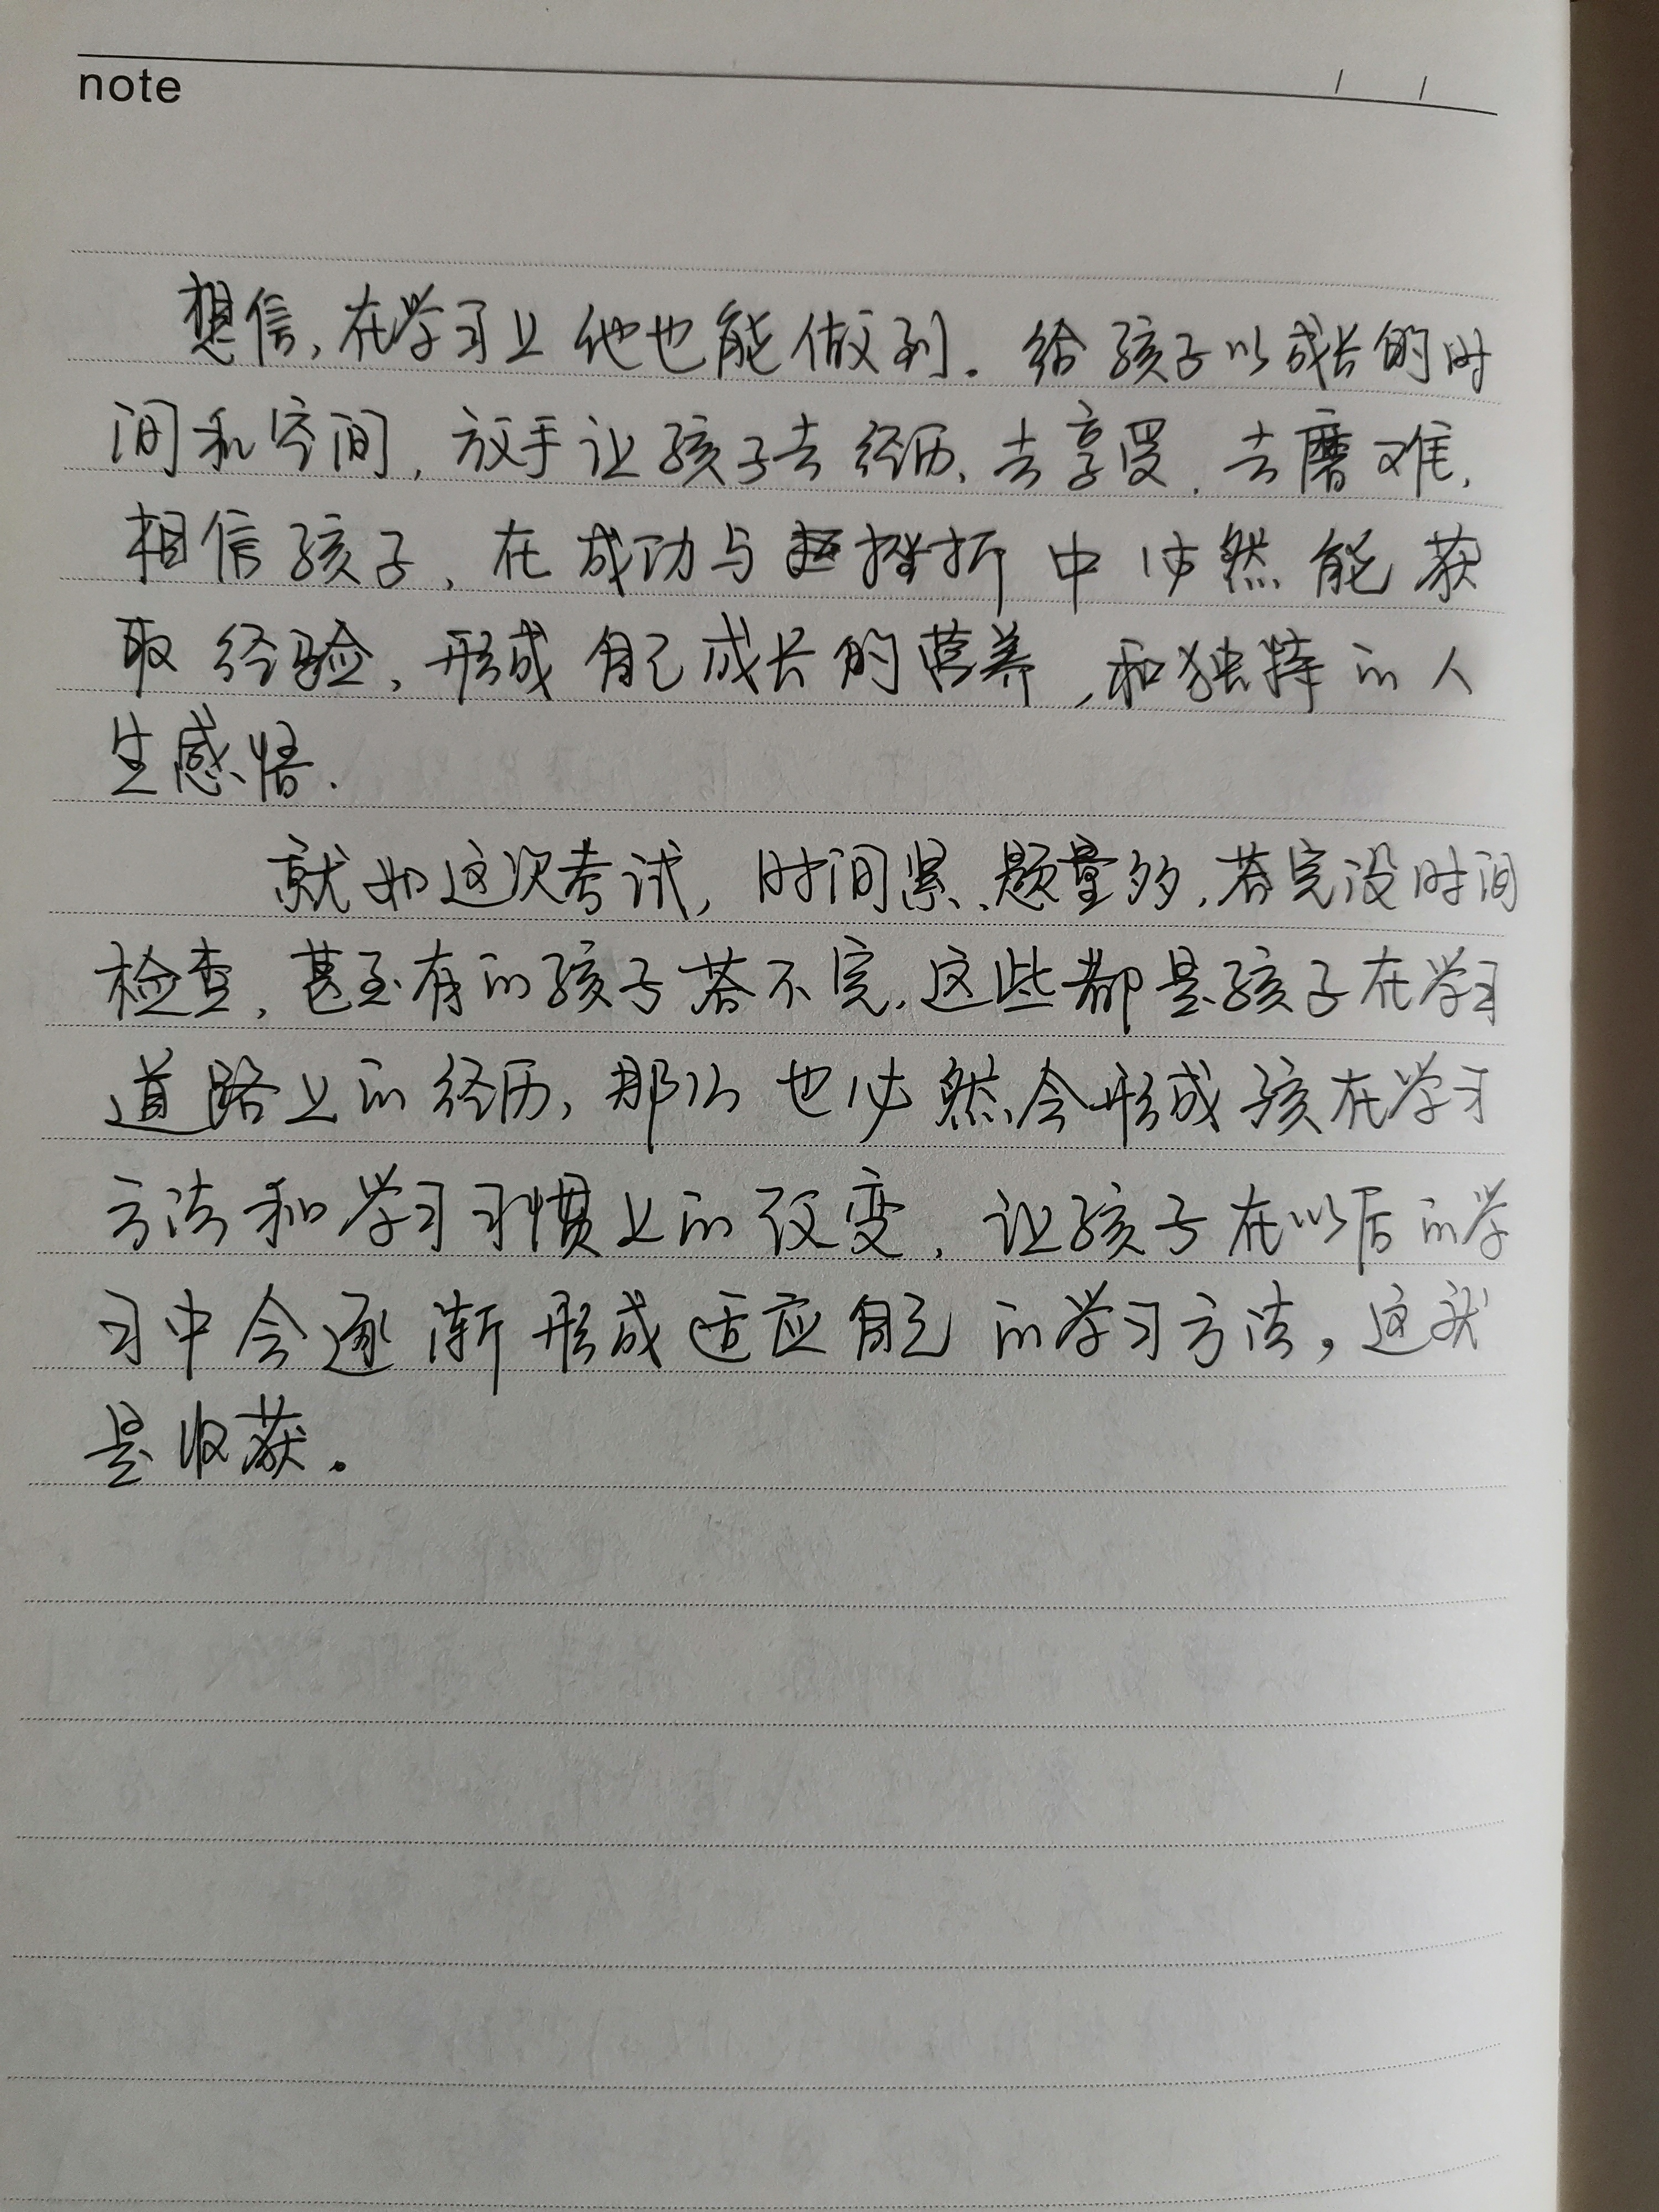 note
想信,在学习上他也能做到。给孩子以成长的时
间和空间,放手让孩子去经历、去享受、去磨难,
相信孩子,在成功与挫折中必然能获
取经验,形成自己成长的营养,和独特的人
生感悟.
就如这次考试,时间紧、题量多,答完没时间
检查,甚至有的孩子答不完,这些都是孩子在学习
道路上的经历,那么也必然会形成孩在学习
方法和学习习惯上的改变,让孩子在以后的学
习中会逐渐形成适应自己的学习方法,这就
是收获。